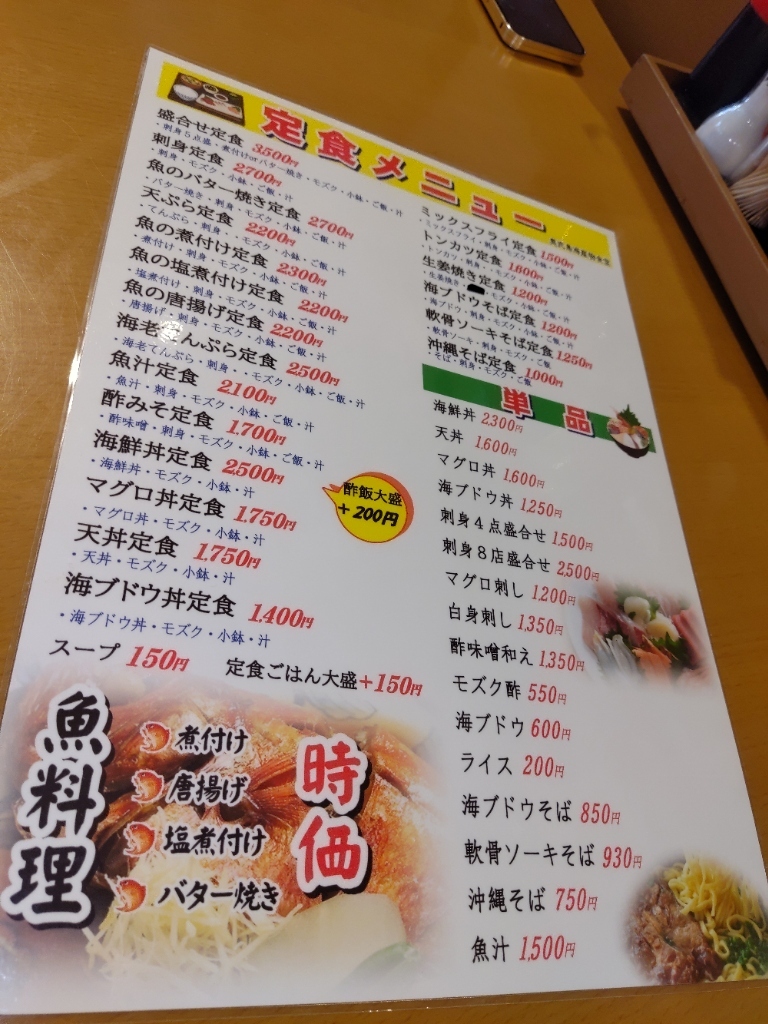 定食メニュー
盛合せ定食 3500円
・刺身5点盛・煮付けorバター焼き・モズク・小鉢・ご飯・汁
刺身定食 2700円
・刺身・モズク・小鉢・ご飯・汁
魚のバター焼き定食 2700円
・バター焼き・刺身・モズク・小鉢・ご飯・汁
天ぷら定食 2200円
・てんぷら・刺身・モズク・小鉢・ご飯・汁
魚の煮付け定食 2300円
・煮付け・刺身・モズク・小鉢・ご飯・汁
魚の塩煮付け定食 2200円
・塩煮付け・刺身・モズク・小鉢・ご飯・汁
魚の唐揚げ定食 2200円
・唐揚げ・刺身・モズク・小鉢・ご飯・汁
海老てんぷら定食 2500円
・海老てんぷら・刺身・モズク・小鉢・ご飯・汁
魚汁定食 2100円
・魚汁・刺身・モズク・小鉢・ご飯
酢みそ定食 1.700円
・酢味噌・刺身・モズク・小鉢・ご飯・汁
海鮮丼定食 2500円
・海鮮丼・モズク・小鉢・汁
マグロ丼定食 1.750円
・マグロ丼・モズク・小鉢・汁
天丼定食 1.750円
・天丼・モズク・小鉢・汁
海ブドウ丼定食 1.400円
・海ブドウ丼・モズク・小鉢・汁
酢飯大盛
+200円
スープ 150円
定食ごはん大盛+150円
魚料理
煮付け
唐揚げ
塩煮付け
バター焼き
時価
ミックスフライ定食 1500円
・ミックスフライ・刺身・モズク・小鉢・ご飯・汁
トンカツ定食 1.800円
・トンカツ・刺身・モズク・小鉢・ご飯・汁
生姜焼き定食 1200円
・生姜焼き・モズク・小鉢・ご飯・汁
海ブドウそば定食 1200円
・海ブドウ・刺身・モズク・ご飯
軟骨ソーキそば定食 1250円
・軟骨ソーキ・刺身・モズク・ご飯
沖縄そば定食 1,000円
・そば・刺身・モズク・ご飯
単品
海鮮丼 2.300円
天丼 1.600円
マグロ丼 1.600円
海ブドウ丼 1,250円
刺身4点盛合せ 1,500円
刺身8店盛合せ 2,500円
マグロ刺し 1,200円
白身刺し 1,350円
酢味噌和え 1,350円
モズク酢 550円
海ブドウ 600円
ライス 200円
海ブドウそば 850円
軟骨ソーキそば 930円
沖縄そば 750円
魚汁 1,500円